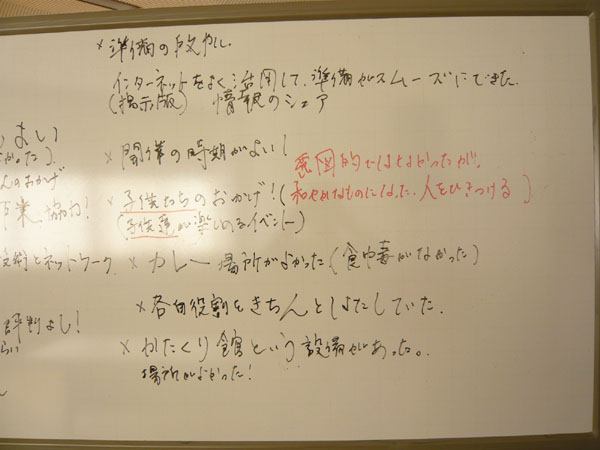 × 準備の段取り。
インターネットをよく活用して、準備がスムーズにできた。
(掲示版) 情報のシェア
よい
× 開催の時期がよい!
かった)。
んのおかげ
意図的ではなかったが、
× 子供たちのおかげ!(
なものになった。人をひきつける)
業、協力!
(子供達が楽しいイベント)
とネットワーク
× カレー 場所がよかった(食中毒がなかった)
× 各自役割をきちんとはたしていた。
評判よし!
× かたくり館という設備があった。
場所がよかった!